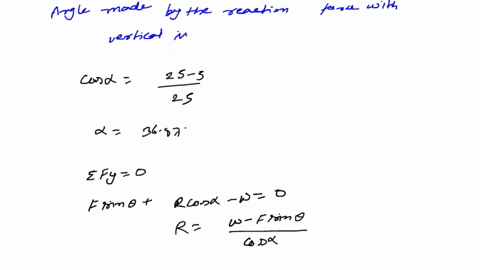 Angle made by the reaction force with
vertical is
cosα = 25-5
25
α = 36.87°
ΣFy = 0
F sin θ + R cos α - w = 0
R = w - F sin θ
cos α